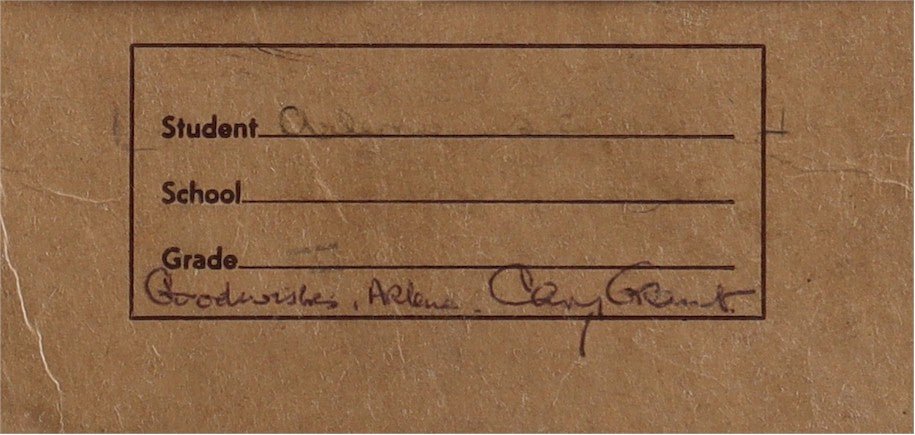 Student
School
Grade
Goodwishes, Arlene. Cary Grant.